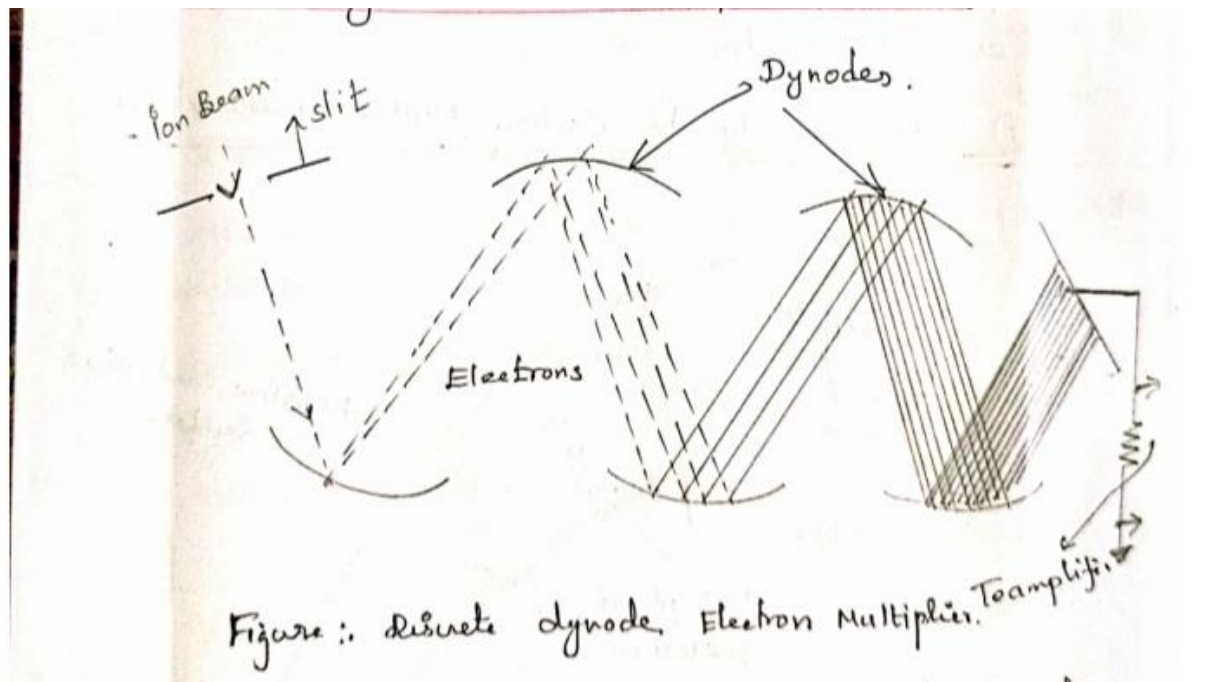 Dynodes.
Ion Beam
slit
Electrons
Toamplifi.
Figure :. Discrete dynode Electron Multiplier.